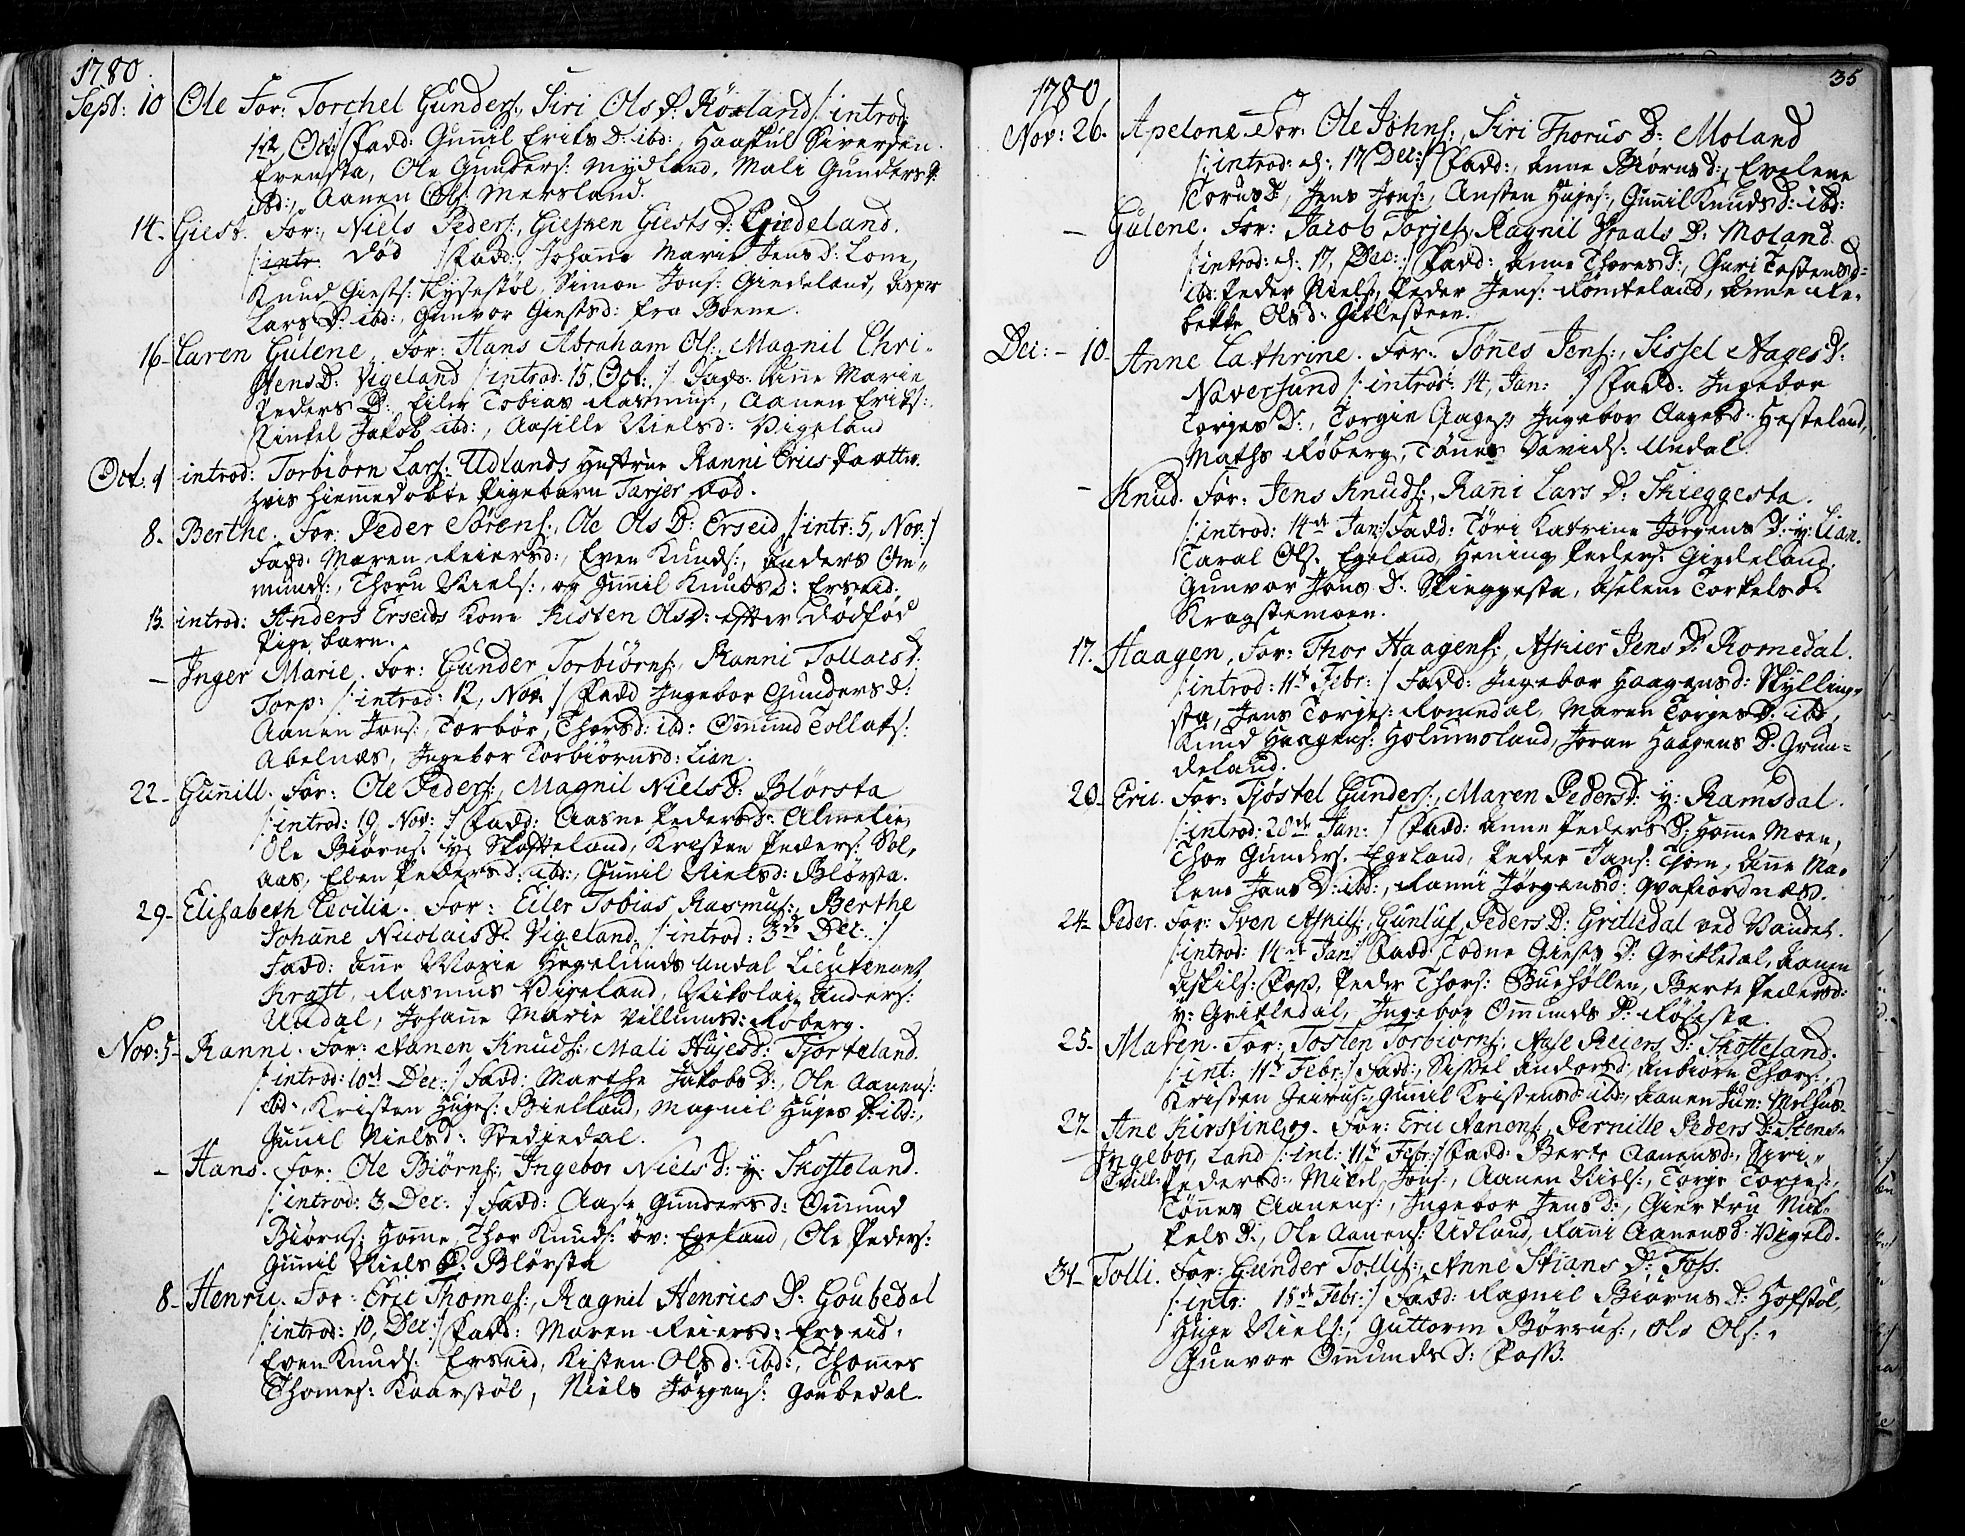 1780
Sept: 10 Ole For: Torchel Gunders:, Siri Ols D: Röxland /: introd:
1te Oct: :/ Fadd: Guñil Eriks D: ibd: Haaskul Siversen.
Evensta, Ole Gunders: Mydland, Mali Gunders D:
ibd:, Aanen Ols: Mersland.
14. Giest. For:, Niels Peders:, Giesken Giests D: Giedeland.
/: intr: död :/ Fadd:, Johañe Marie Jens D: Lone,
Knud Giests: Tysestöl, Simon Jons: Giedeland, Asper
Lars D: ibd:, Gunvor Giestsd: fra Boene.
16. Caren Gulene. For: Hans Abraham Ols:, Magnil Chri-
stens D: Vigeland /: introd: 15, Oct: :/ Fadd: Añe Marie
Peders D:, Eiler Tobias Rasmus:, Aanen Eriks:,
Rinkel Jakob ibd:, Aasille Nielsd: Vigeland
Oct: 1 introd: Torbiörn Lars: Udlands Hustrue Ranni Erics Daatter.
hvis hiemmedöbte Pigebarn Tarjer död.
8. Berthe. For: Peder Sörens:, Ole Ols D: Erseid /: intr: 5, Nov: :/
Fadd: Maren Reiersd:, Even Knuds:, Anders Om-
munds:, Thoru Niels:, og Guñil Knuds D: Erseid.
15. introd: Anders Erseids Kone Kisten Ols D: efter dödfød
Pige barn.
- Inger Marie. For: Gunder Torbiörns:, Ranni Tollacs D:
Torp: /: introd: 12, Nov: :/ Fadd Ingebor Gunders D:
Aanen Jons:, Torbör, Thorsd: ibd: Oṁund Tollaks:
Abelnæs, Ingebor Torbiörnsd: Lian.
22. Guñill. For: Ole Peders:, Magnil Niels D: Blörsta
/: introd: 19 Nov: :/ Fadd: Aasne Pedersd: Almelie,
Ole Biörns: y: Skofteland, Kristen Peders: Sol,
aas, Elen Pedersd: ibd:, Guñil Nielsd: Blörsta.
29. Elisabeth Cecilia. For: Eiler Tobias Rasmus:, Berthe
Johañe Nicolais D: Vigeland /: introd: 3de Dec: :/
Fadd: Añe Marie Hegelunds Undal Lieutenant
Kraft, Rasmus Vigeland, Nikolai Anders:
Undal, Johañe Marie Villumsd: Röberg.
Nov: 5. Ranni. For: Aanen Knuds:, Mali Hujesd: Tjorteland.
/: introd: 10de Dec: :/ Fadd: Marthe Jakobs D:, Ole Aanens:
ibd:, Kristen Hujes: Bielland, Magnil Hujes D: ibd:,
Guñil Nielsd: Stediedal.
- Hans. For: Ole Biörns:, Ingebor Niels D: y: Skofteland.
/: introd: 3, Dec: :/ Fadd: Aase Gundersd: Oṁund
Biörns: Hoṁe, Thor Knuds: öv: Egeland, Ole Peders:
Guñil Niels D: Blörsta
8. Henric. For: Eric Thomes:, Ragnil Henrics D: Goubedal
/: introd: 10, Dec: :/ Fadd: Maren Reiersd: Erseid,
Even Knuds: Erseid, Kisten Olsd: ibd:, Thoṁes
Thomes: Kaarstöl, Niels Jörgens: Goubedal.
35
1780
Nov: 26. Apelone. For: Ole Johns:, Siri Thorus D: Moland
/: introd: d: 17 Dec: :/ Fadd:, Anne Biörns D:, Evelene
Torus D:, Jens Jons:, Austen Hujes:, Guñil Knuds D: ibd:
- Gulene. For: Jacob Torjes:, Ragnil Iraals D: Moland.
/: introd: d: 17, Dec: :/ Fadd: Anne Thores D:, Guri Tostensd:
ibd: Peder Niels:, Peder Jens: Romteland, Anne Re-
bekke Olsd: Gitlesteen.
Dec: - 10. Anne Cathrine. For: Töñes Jens:, Sissel Aages D:
Naversund /: introd: 14, Jan: :/ Fadd: Ingebor
Torjes D:, Torgin Aages: Ingebor Aagesd: Hesteland,
Mathis Röberg, Töñes Davids: Undal.
- Knud. For: Jens Knuds:, Rañi Lars D: Skieggesta.
/: introd: 14de Jan: :/ Fadd: Töri Katrine Jörgens D: y: Lian.
Taral Ols: Egeland, Hening Peders: Giedeland.
Gunvor Jons D: Skieggesta, Aselene Torkelsd:
Kragstemoen.
17. Haagen. For: Thor Haagens:, Asmer Jens D: Romedal.
/: introd: 11te Febr: :/ Fadd: Ingebor Haagensd: Skylling-
sta, Jens Torges: Romedal, Maren Torges D: ibd,
Knud Haagens: Holmmoland, Joran Haagens D. Grun-
deland.
20. Eric. For: Tjöstel Gunders:, Maren Peders D: y: Ramsdal.
/: introd: 28de Jan: :/ Fadd: Anne Peders D: Hoṁe Moen,
Thor Gunders: Egeland, Peder Jans: Thom, Añe Ma-
lene Jans D: ibd:, Rañni Jörgensd: Qvafiordnæs.
24. Peder. For: Sven Askils:, Gunluf Peders D: Gritledal ved Vandet.
/: introd: 14de Jan: :/ Fadd: Todne Giests D: Gritledal, Aanen
Askils: Foss, Peder Thors: Buehöllen, Berte Pedersd:
y: Gritledal, Ingebor Oṁunds D: Rösesta
25. Maren. For: Tosten Torbiörns:, Aase Reiers D: Skofteland.
/: int: 11te Febr: :/ Fadd:, Sissel Andersd, Anbiörn Thors:,
Kristen Geirus:, Guñil Kristensd: ibd:, Aanen Jun: Melhus.
27. Ane Kirstine og. For: Eric Aanens:, Pernille Peders D: Stens-
- Ingebor, land /: int: 11te Febr: :/ Fadd: Berte Aanensd:, Siri
Tvill: Pedersd:, Mikel Jons:, Aanen Niels:, Torge Torges:,
Töñes Aanens:, Ingebor Jens D:, Giertru Mik-
kels D:, Ole Aanens: Udland, Rañi Aanens D: Vigeld.
31. Tolli. For: Gunder Tollis:, Anne Stians D: Foss.
/: intr: 18de Febr: :/ Fadd: Ragnil Biörns D: Hofstöl,
Huje Niels:, Guttorm Börrus:, Ole Ols:,
Gunvor Oṁunds D: Foss.